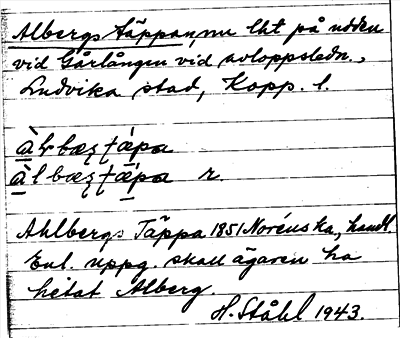 Albergs täppan, nu lht på udden
vid Gårlången vid avloppsledn.,
Ludvika stad, Kopp. l.
àlbæʂ ʈápa
àlbæʂ ʈǽpa r.
Ahlbergs Täppa 1851 Norénska, handl.
Enl. uppg. skall ägaren ha
hetat Alberg.
H. Ståhl 1943.